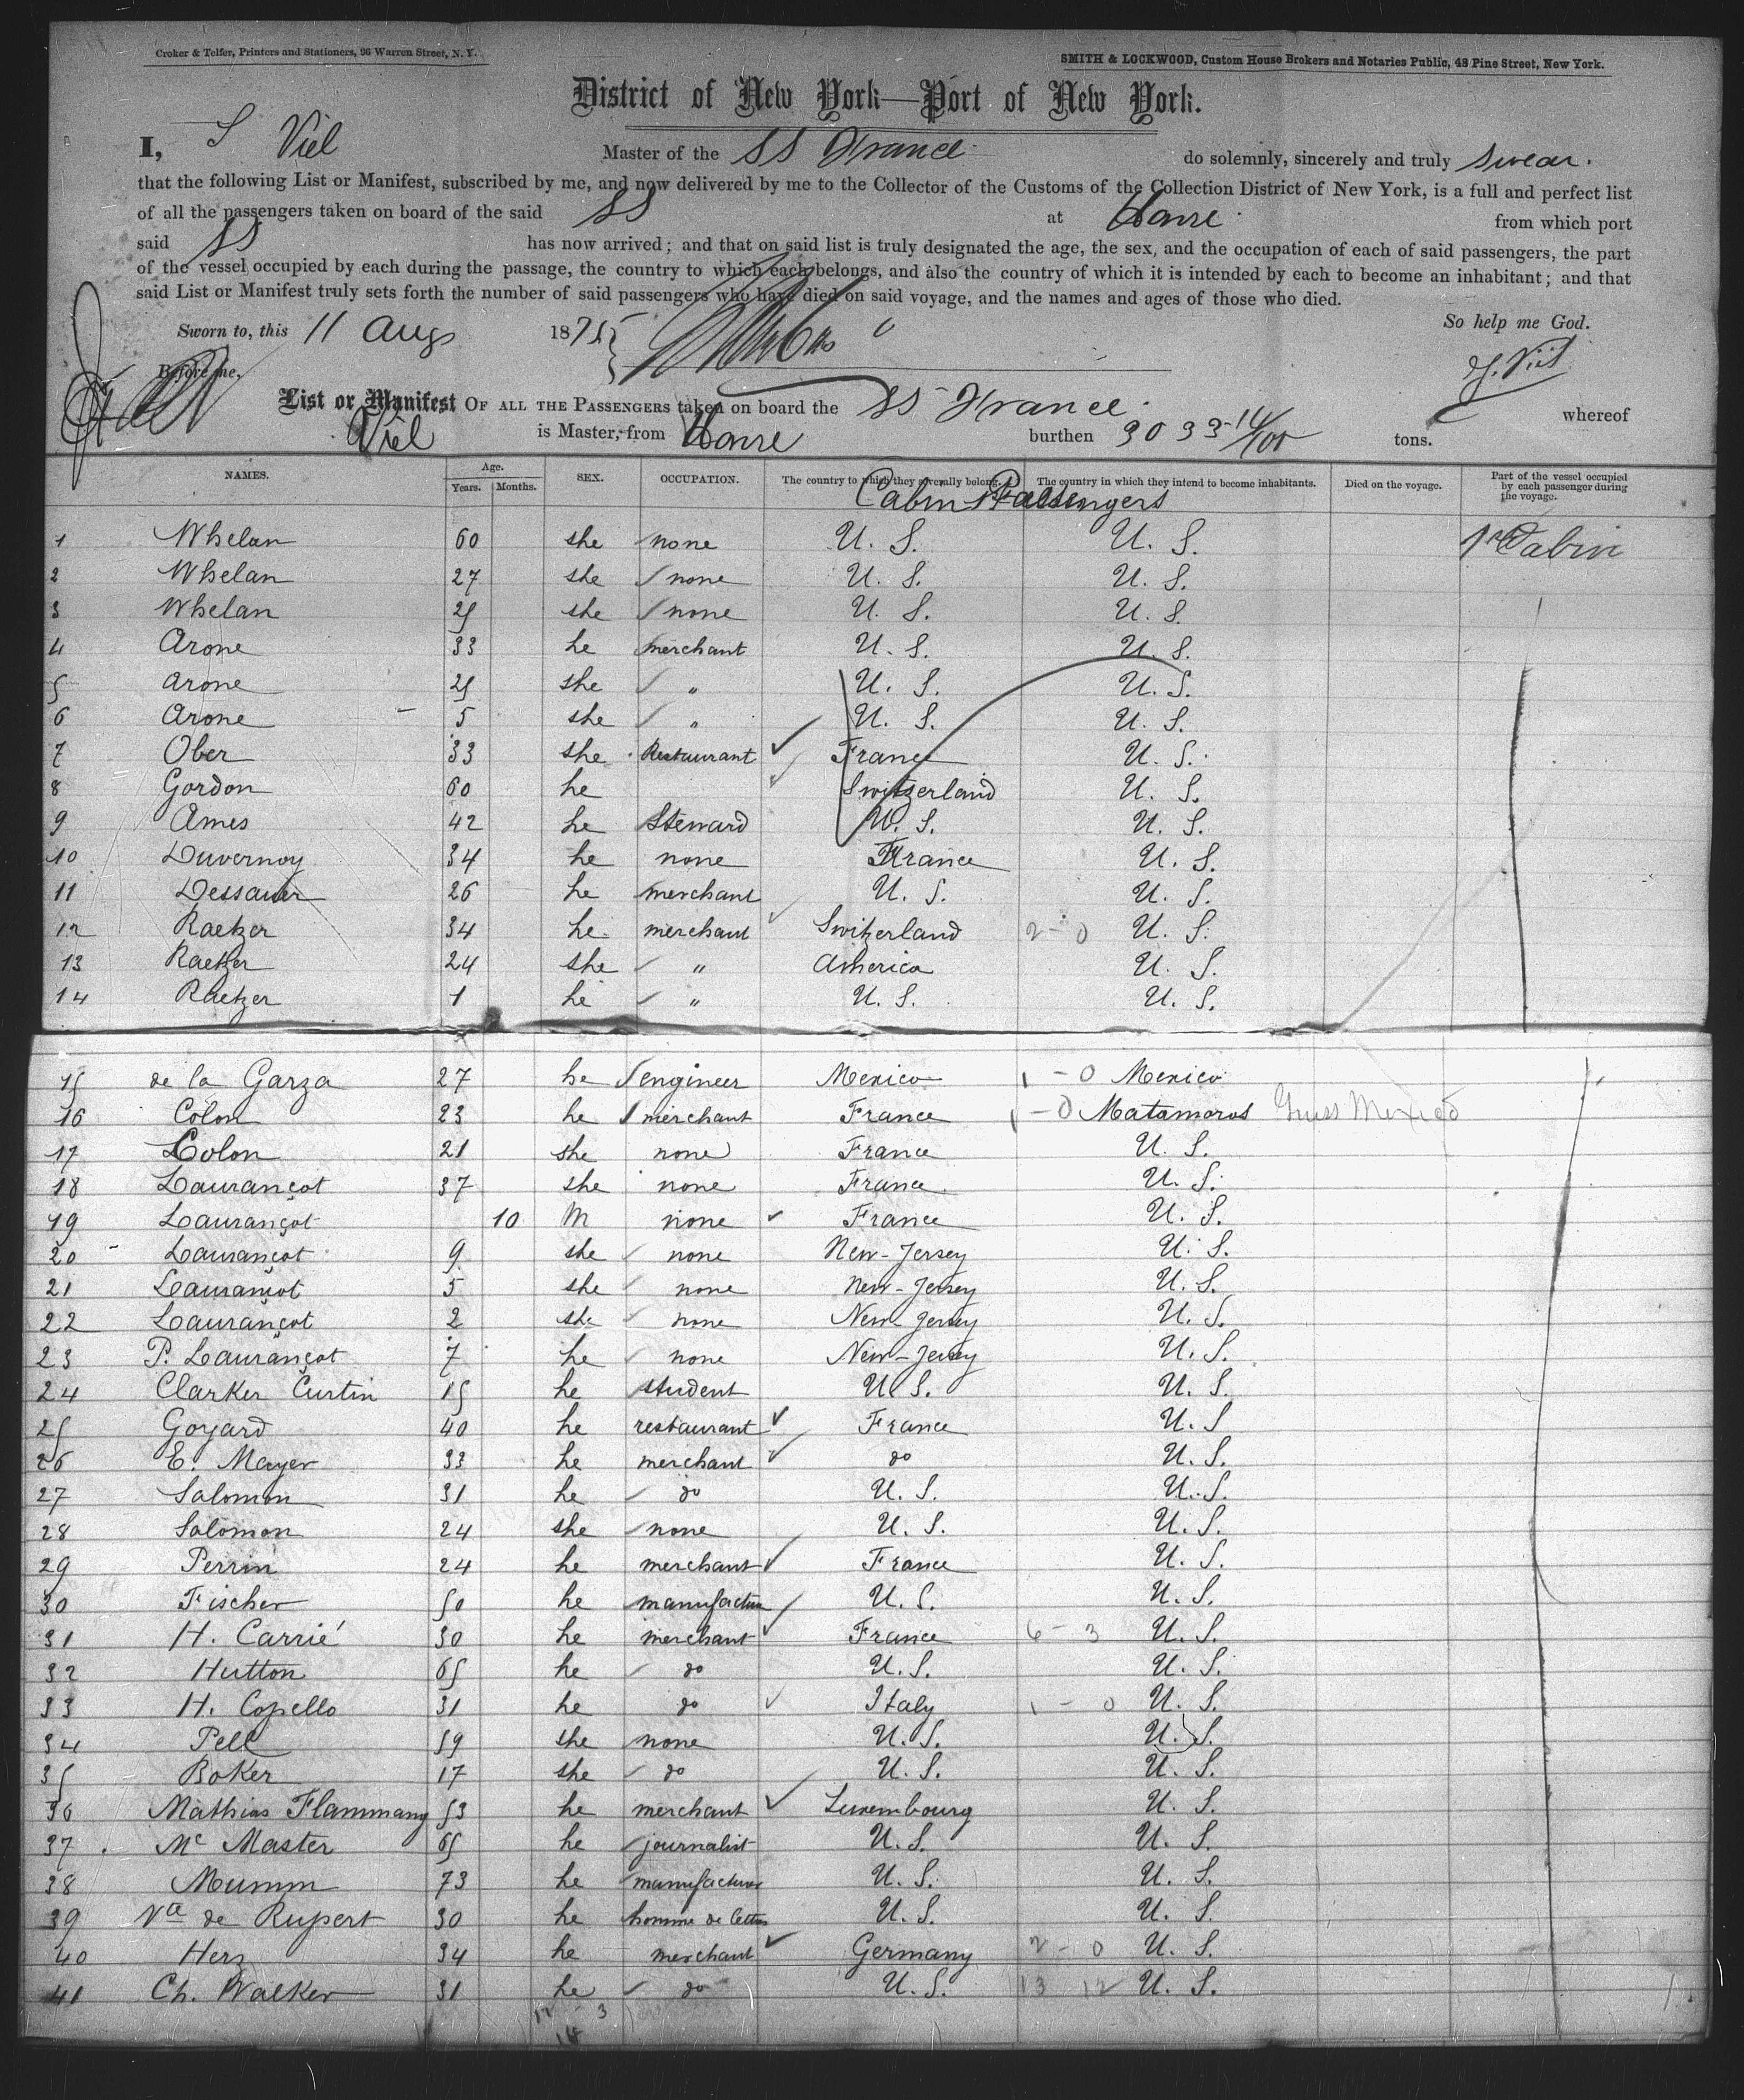 Croker & Telfer, Printers and Stationers, 96 Warren Street, N. Y.
SMITH & LOCKWOOD, Custom House Brokers and Notaries Public, 48 Pine Street, New York.
District of New York—Port of New York.
I, Viel Master of the SS France do solemnly, sincerely and truly swear.
that the following List or Manifest, subscribed by me, and now delivered by me to the Collector of the Customs of the Collection District of New York, is a full and perfect list
of all the passengers taken on board of the said SS at Havre from which port
said SS has now arrived; and that on said list is truly designated the age, the sex, and the occupation of each of said passengers, the part
of the vessel occupied by each during the passage, the country to which each belongs, and also the country of which it is intended by each to become an inhabitant; and that
said List or Manifest truly sets forth the number of said passengers who have died on said voyage, and the names and ages of those who died.
Sworn to, this 11 Aug 1875 So help me God.
Before me, Viel
List or Manifest OF ALL THE PASSENGERS taken on board the SS France whereof
Viel is Master, from Havre burthen tons.
NAMES. Age. Years. Months. SEX. OCCUPATION. The country to which they severally belong. The country in which they intend to become inhabitants. Died on the voyage. Part of the vessel occupied by each passenger during the voyage.
Cabin Passengers
1 Whelan 60 she none U. S. U. S. 1st Cabin
2 Whelan 27 she none U. S. U. S.
3 Whelan 25 she none U. S. U. S.
4 Arone 33 he merchant U. S. U. S.
5 Arone 25 she " U. S. U. S.
6 Arone 5 she " U. S. U. S.
7 Ober 33 she Restaurant France U. S.
8 Gordon 60 he Switzerland U. S.
9 Ames 42 he Steward U. S. U. S.
10 Duvernoy 34 he none France U. S.
11 Dessauer 26 he merchant U. S. U. S.
12 Raetzer 34 he merchant Switzerland 2 - 0 U. S.
13 Raetzer 24 she " America U. S.
14 Raetzer 1 he " U. S. U. S.
15 de la Garza 27 he engineer Mexico 1 - 0 Mexico
16 Colon 23 he merchant France 1 - 0 Matamoros Guess Mexico
17 Colon 21 she none France U. S.
18 Laurançot 37 she none France U. S.
19 Laurançot 10 M none France U. S.
20 Laurançot 9 she none New-Jersey U. S.
21 Laurançot 5 she none New-Jersey U. S.
22 Laurançot 2 she none New-Jersey U. S.
23 P. Laurançot 7 he none New-Jersey U. S.
24 Clarker Curtin 15 he student U. S. U. S.
25 Goyard 40 he restaurant France U. S
26 E. Mayer 33 he merchant do U. S.
27 Salomon 31 he do U. S. U. S.
28 Salomon 24 she none U. S. U. S.
29 Perrin 24 he merchant France U. S.
30 Fischer 50 he manufactur U. S. U. S.
31 H. Carrié 30 he merchant France 6 - 3 U. S.
32 Hutton 65 he do U. S. U. S.
33 H. Copello 31 he do Italy 1 - 0 U. S.
34 Pell 59 she none U. S. U. S.
35 Boker 17 she do U. S. U. S.
36 Mathias Flammang 53 he merchant Luxembourg U. S.
37 Mc Master 65 he journalist U. S. U. S.
38 Mumm 73 he manufacturer U. S. U. S.
39 Vte de Rupert 30 he homme de lettres U. S. U. S.
40 Herz 34 he merchant Germany 2 - 0 U. S.
41 Ch. Walker 31 he do U. S. 13 12 U. S.